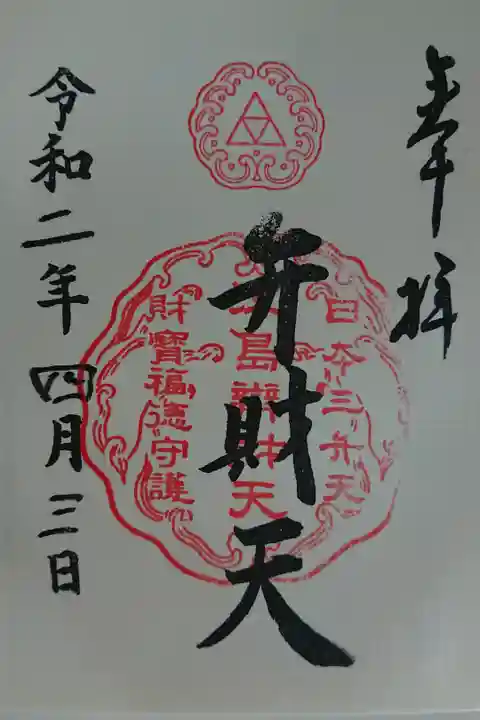 奉拝
日本三弁天
島辨財天
弁財天
財寶福德守護
令和二年四月三日